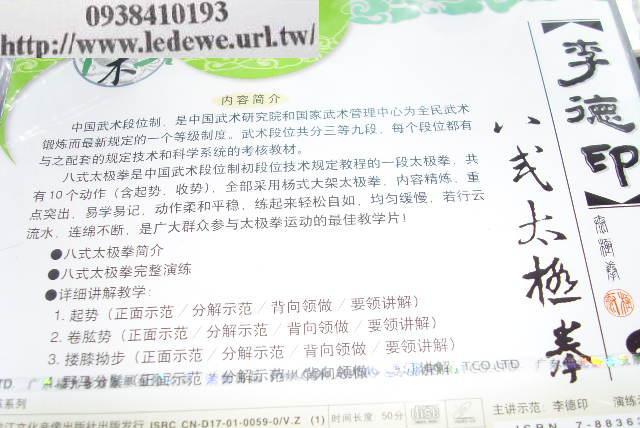 0938410193
http://www.ledewe.url.tw/
术
内容简介
中国武术段位制，是中国武术研究院和国家武术管理中心为全民武术
锻炼而最新规定的一个等级制度。武术段位共分三等九段，每个段位都有
与之配套的规定技术和科学系统的考核教材。
八式太极拳是中国武术段位制初段位技术规定教程的一段太极拳，共
有10个动作（含起势、收势），全部采用杨式大架太极拳，内容精炼、重
点突出，易学易记，动作柔和平稳，练起来轻松自如，均匀缓慢，若行云
流水，连绵不断，是广大群众参与太极拳运动的最佳教学片！
●八式太极拳简介
●八式太极拳完整演练
●详细讲解教学：
1. 起势（正面示范／分解示范／背向领做／要领讲解）
2. 卷肱势（正面示范／分解示范／背向领做／要领讲解）
3. 搂膝拗步（正面示范／分解示范／背向领做／要领讲解）
野马分鬃（正面示范／分解示范／背向领做
T.CO.,LTD
TD.
系列
江文化音像出版社出版发行 ISRC CN-D17-01-0059-0/V.Z (1)
时间长度 50分
主讲示范：李德印
演练示
ISBN 7-8836
【李德印】
八式太極拳